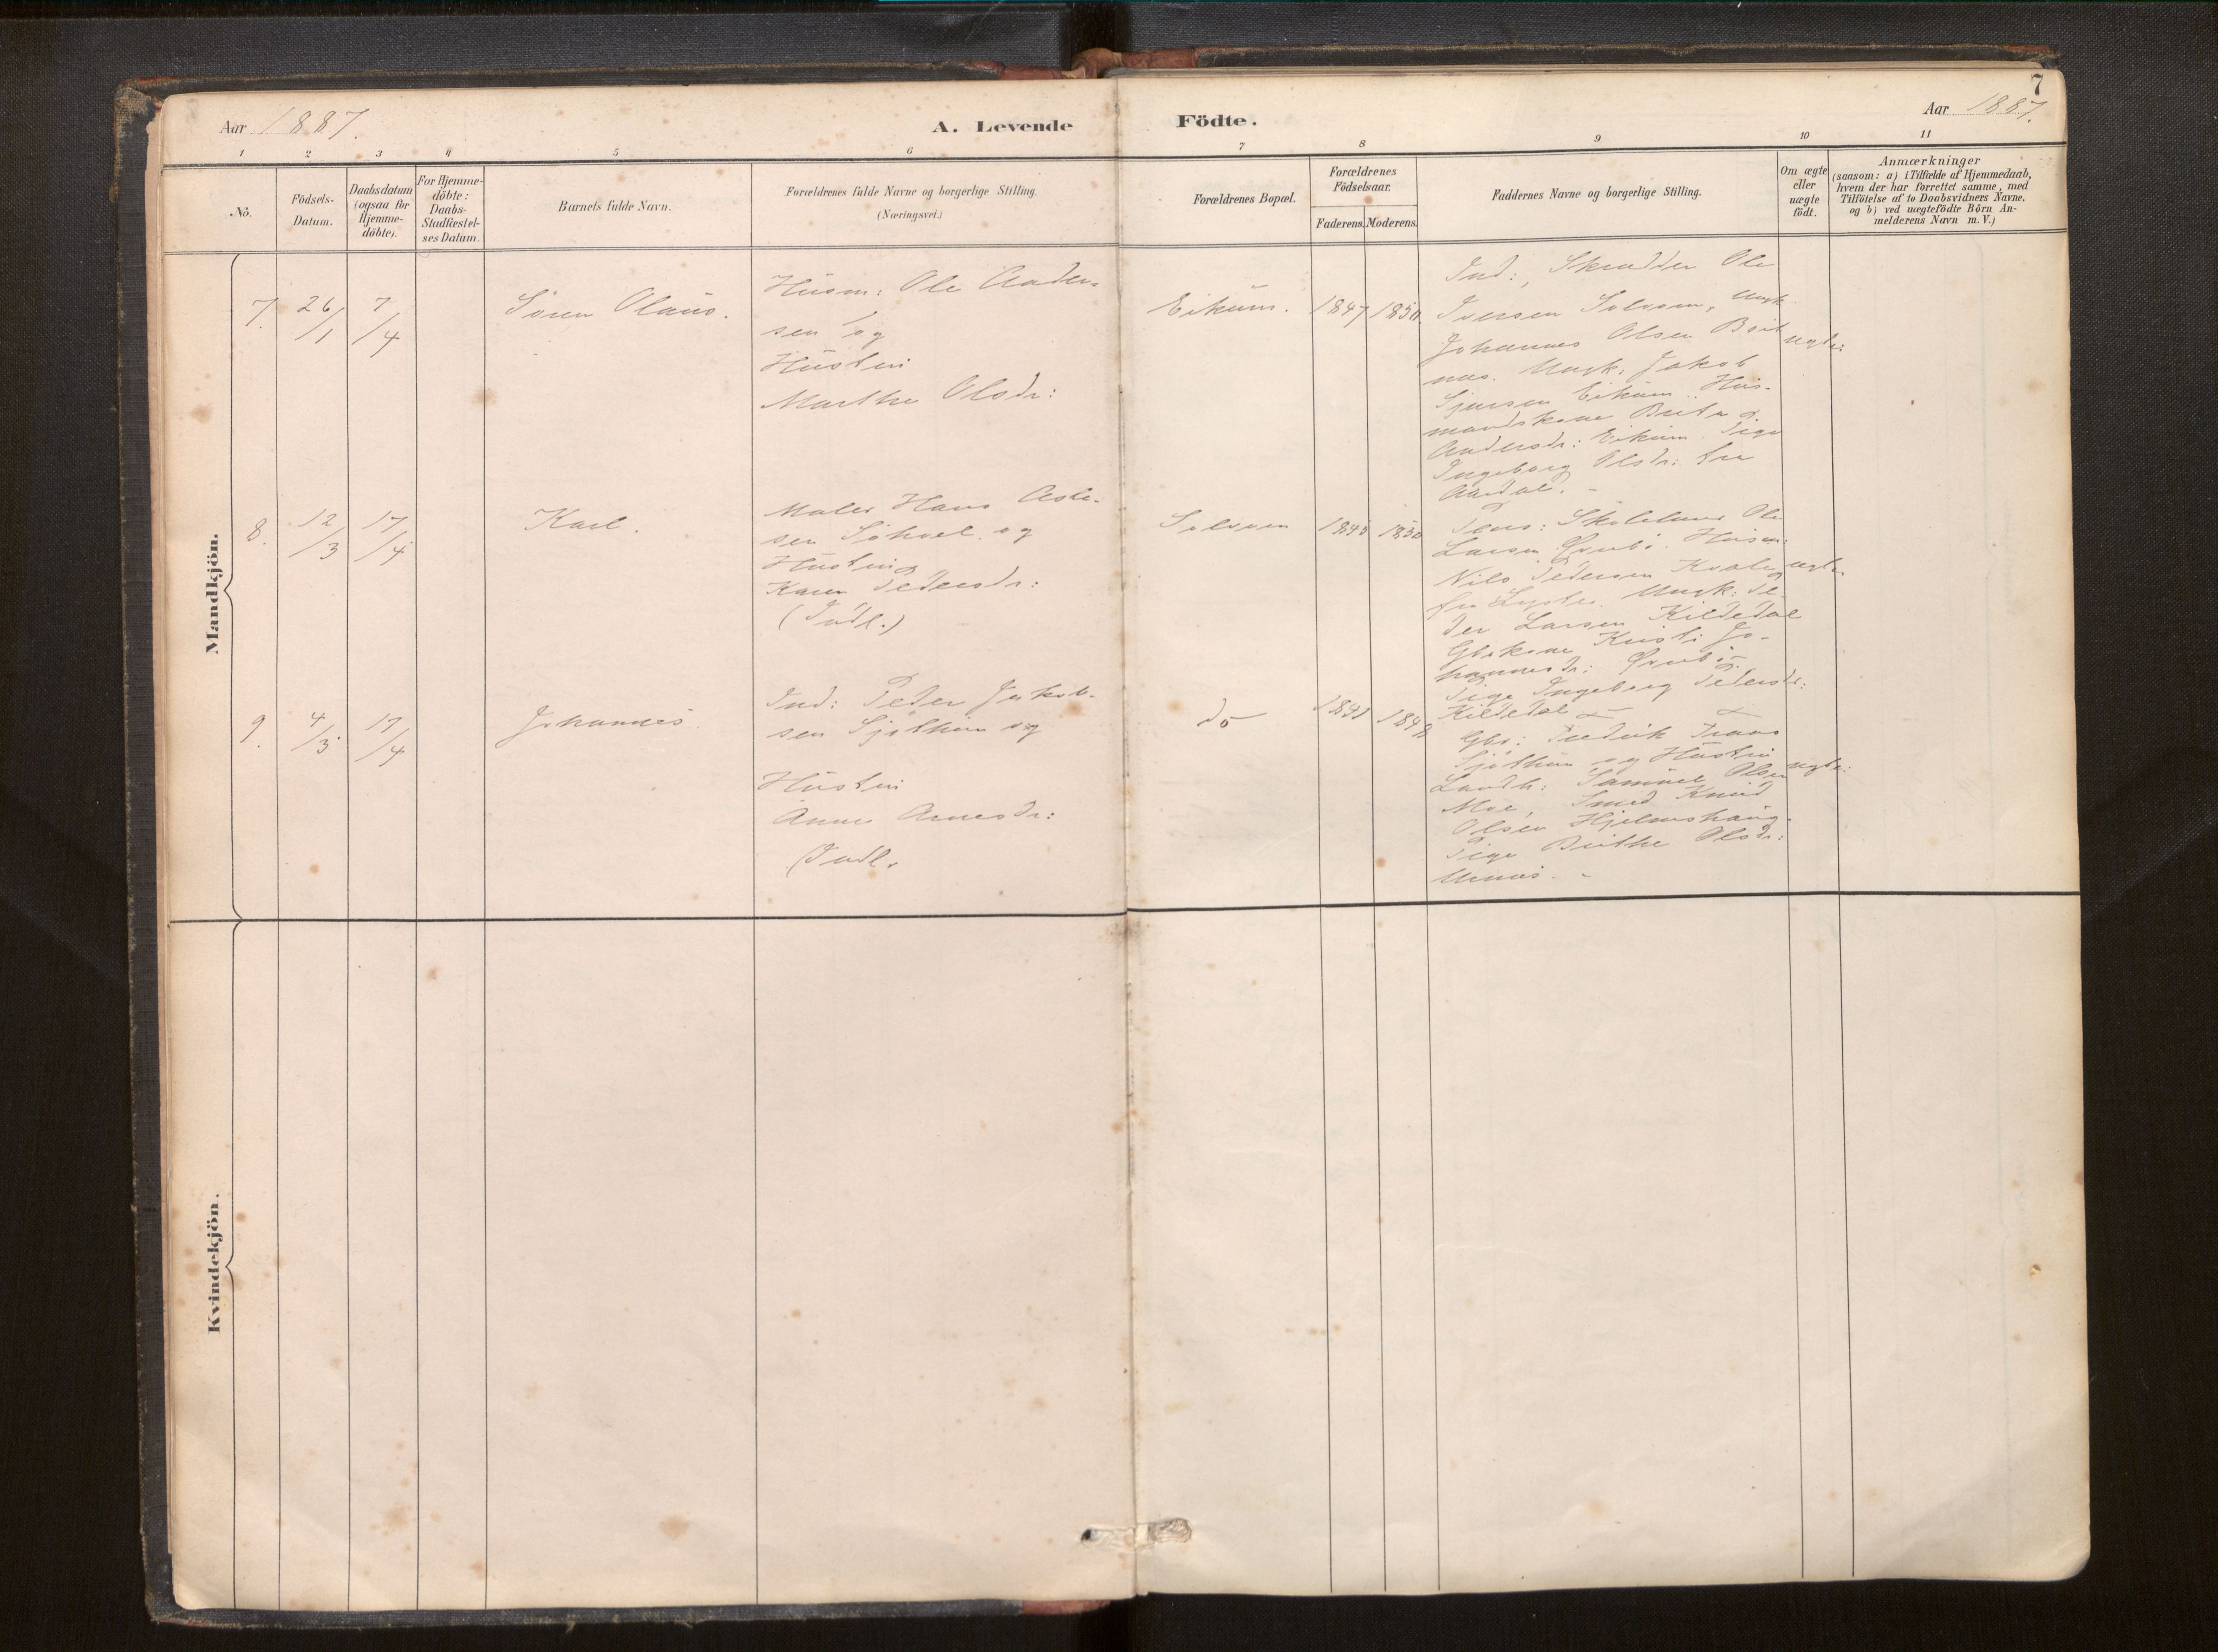 7
Aar 1887.
A. Levende
Födte.
Aar 1887.
1 2 3 4 5 6 7 8 9 10 11
No.
Födsels-
Datum.
Daabsdatum
(ogsaa for
Hjemme-
döbte).
For Hjemme-
döbte:
Daabs-
Stadfæstel-
ses Datum.
Barnets fulde Navn.
Forældrenes fulde Navne og borgerlige Stilling.
(Næringsvei.)
Forældrenes Bopæl.
Forældrenes
Födselsaar.
Faderens. Moderens.
Faddernes Navne og borgerlige Stilling.
Om ægte
eller
uægte
födt.
Anmærkninger
(saasom: a) i Tilfælde af Hjemmedaab,
hvem der har forrettet samme, med
Tilföielse af to Daabsvidners Navne.
og b) ved uægtefödte Börn An-
melderens Navn m. V.)
Mandkjön.
7.
26/1
7/4
Sören Olaus.
Husm: Ole Anders-
sen og
Hustru
Marthe Olsdr:
Eikum.
1847
1850
Ind:, Skrædder Ole
Iversen Solvorn, Ungk
Johannes Olsen
Ungk. Jakob
Eikum. Hus-
mandskone
Andersdr: Eikum. Pige
Ingeborg Olsdr: fra
Aardal. -
ægte:
8.
12/3
17/4
Karl.
Maler Hans
sen og
Hustru
Karen Pedersdr:
(Indl.)
Solvorn
1845
1850
Skolelærer Ole
Larsen Husm:
Nils Pedersen Kvale
fra Lyster. Ungk: Pe-
der Larsen Kildedal
Gbrkone Kristi Jo-
hannesdr:
Pige Ingeborg Pedersdr:
Kildedal
ægte.
9.
4/3
17/4
Johannes
Ind: Peder Jakob-
sen Sjöthun og
Hustru
Anna Arnesdr:
(Indl.
do
1841
1848
Gbr: Fredrik Frans
Sjöthun og Hustru
Landh: Samuel Olsen
Moe, Smed Knud
Olsen Hjelmshaug.
Pige Birthe Olsdr:
Urnæs. -
ægte:
Kvindekjön.